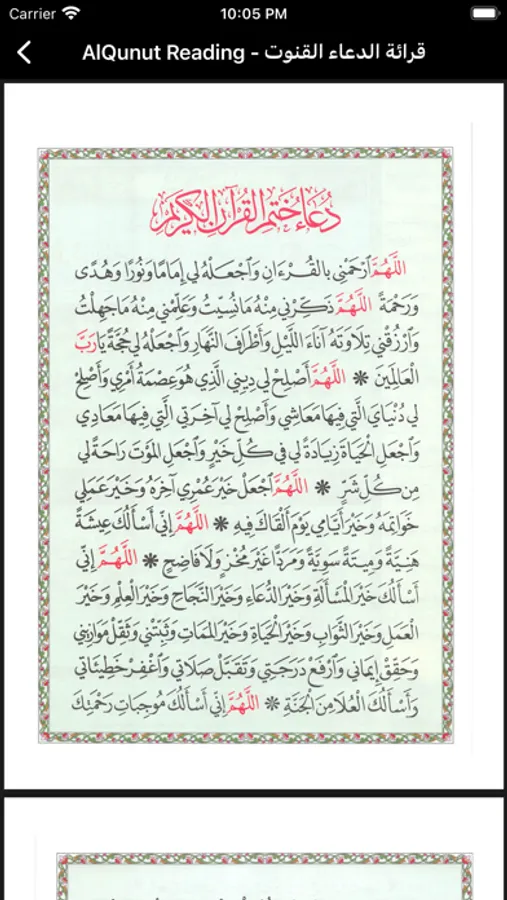 Carrier
10:05 PM
AlQunut Reading - قرائة الدعاء القنوت
دُعَاءُ خَتْمِ الْقُرْآنِ الْكَرِيمِ
اللَّهُمَّ ارْحَمْنِي بِالْقُرْءَانِ وَاجْعَلْهُ لِي إِمَامًا وَنُورًا وَهُدًى
وَرَحْمَةً اللَّهُمَّ ذَكِّرْنِي مِنْهُ مَا نُسِّيتُ وَعَلِّمْنِي مِنْهُ مَا جَهِلْتُ
وَارْزُقْنِي تِلَاوَتَهُ آنَاءَ اللَّيْلِ وَأَطْرَافَ النَّهَارِ وَاجْعَلْهُ لِي حُجَّةً يَا رَبَّ
الْعَالَمِينَ ❋ اللَّهُمَّ أَصْلِحْ لِي دِينِي الَّذِي هُوَ عِصْمَةُ أَمْرِي وَأَصْلِحْ
لِي دُنْيَايَ الَّتِي فِيهَا مَعَاشِي وَأَصْلِحْ لِي آخِرَتِي الَّتِي فِيهَا مَعَادِي
وَاجْعَلِ الْحَيَاةَ زِيَادَةً لِي فِي كُلِّ خَيْرٍ وَاجْعَلِ الْمَوْتَ رَاحَةً لِي
مِنْ كُلِّ شَرٍّ ❋ اللَّهُمَّ اجْعَلْ خَيْرَ عُمْرِي آخِرَهُ وَخَيْرَ عَمَلِي
خَوَاتِمَهُ وَخَيْرَ أَيَّامِي يَوْمَ أَلْقَاكَ فِيهِ ❋ اللَّهُمَّ إِنِّي أَسْأَلُكَ عِيشَةً
هَنِيَّةً وَمِيتَةً سَوِيَّةً وَمَرَدًّا غَيْرَ مُخْزٍ وَلَا فَاضِحٍ ❋ اللَّهُمَّ إِنِّي
أَسْأَلُكَ خَيْرَ الْمَسْأَلَةِ وَخَيْرَ الدُّعَاءِ وَخَيْرَ النَّجَاحِ وَخَيْرَ الْعِلْمِ وَخَيْرَ
الْعَمَلِ وَخَيْرَ الثَّوَابِ وَخَيْرَ الْحَيَاةِ وَخَيْرَ الْمَمَاتِ وَثَبِّتْنِي وَثَقِّلْ مَوَازِينِي
وَحَقِّقْ إِيمَانِي وَارْفَعْ دَرَجَتِي وَتَقَبَّلْ صَلَاتِي وَاغْفِرْ خَطِيئَاتِي
وَأَسْأَلُكَ الْعُلَا مِنَ الْجَنَّةِ ❋ اللَّهُمَّ إِنِّي أَسْأَلُكَ مُوجِبَاتِ رَحْمَتِكَ